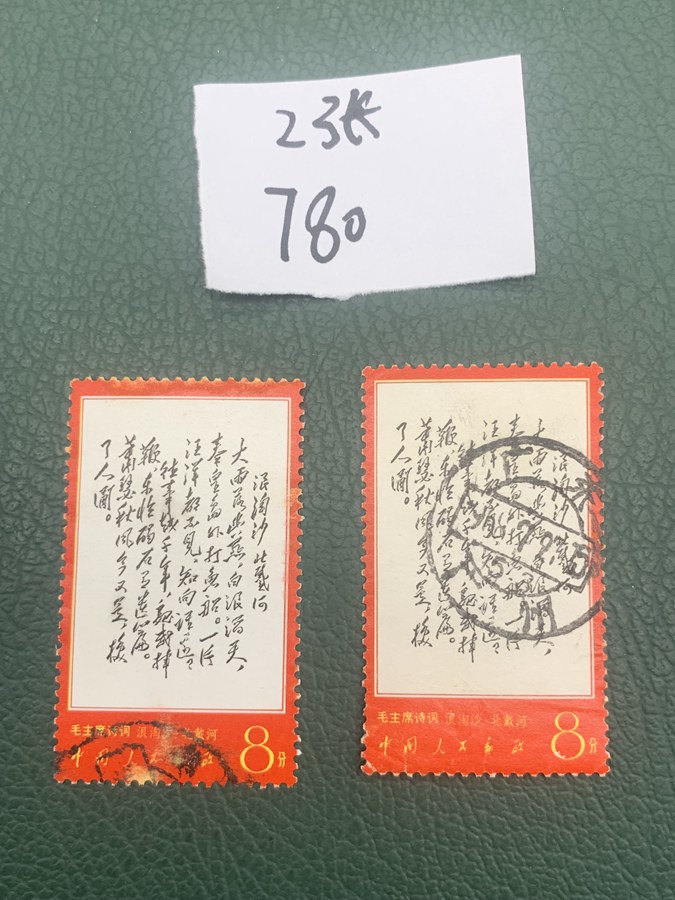 23张
780
浪淘沙 北戴河
大雨落幽燕,白浪滔天,
秦皇岛外打魚船。一片
汪洋都不見,知向谁边
往事越千年,魏武挥
鞭,东临碣石有遗篇。
萧瑟秋风今又是,换
了人间。
毛主席诗词 浪淘沙 北戴河
中国人民邮政 8分
浪淘沙 北戴河
大雨落幽燕,白浪滔天,
秦皇岛外打魚船。一片
汪洋都不見,知向谁边
往事越千年,魏武挥
鞭,东临碣石有遗篇。
萧瑟秋风今又是,换
了人间。
州
毛主席诗词 浪淘沙 北戴河
中国人民邮政 8分